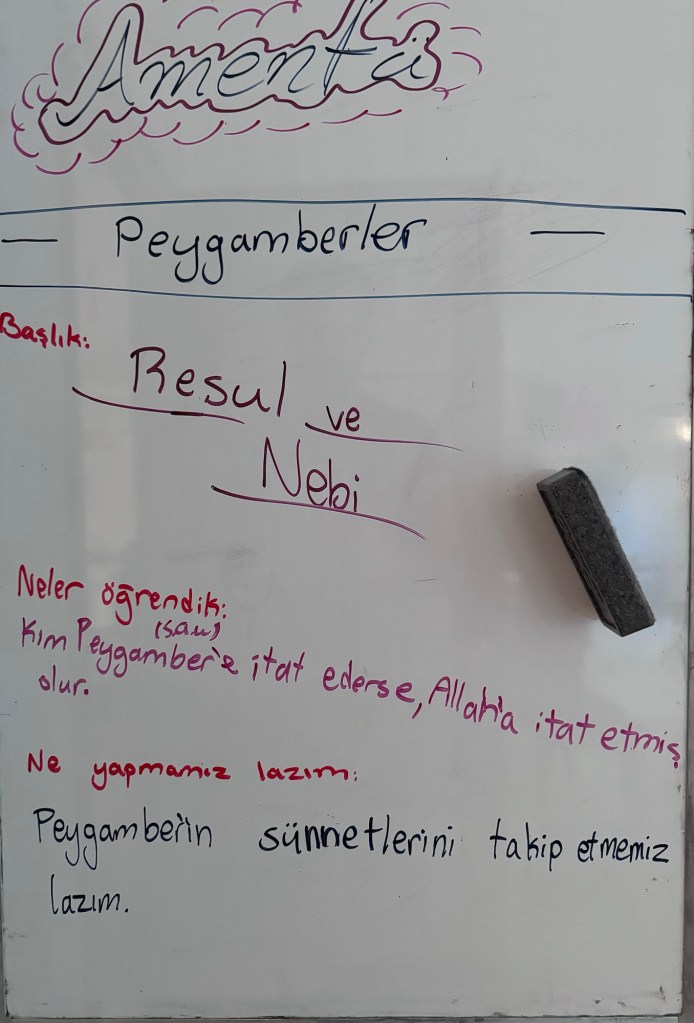 Amentü
— Peygamberler —
Başlık:
Resul ve
Nebi
Neler öğrendik:
(s.a.v)
Kim Peygamber'e itat ederse, Allah'a itat etmiş
olur.
Ne yapmamız lazım:
Peygamber'in sünnetlerini takip etmemiz
lazım.